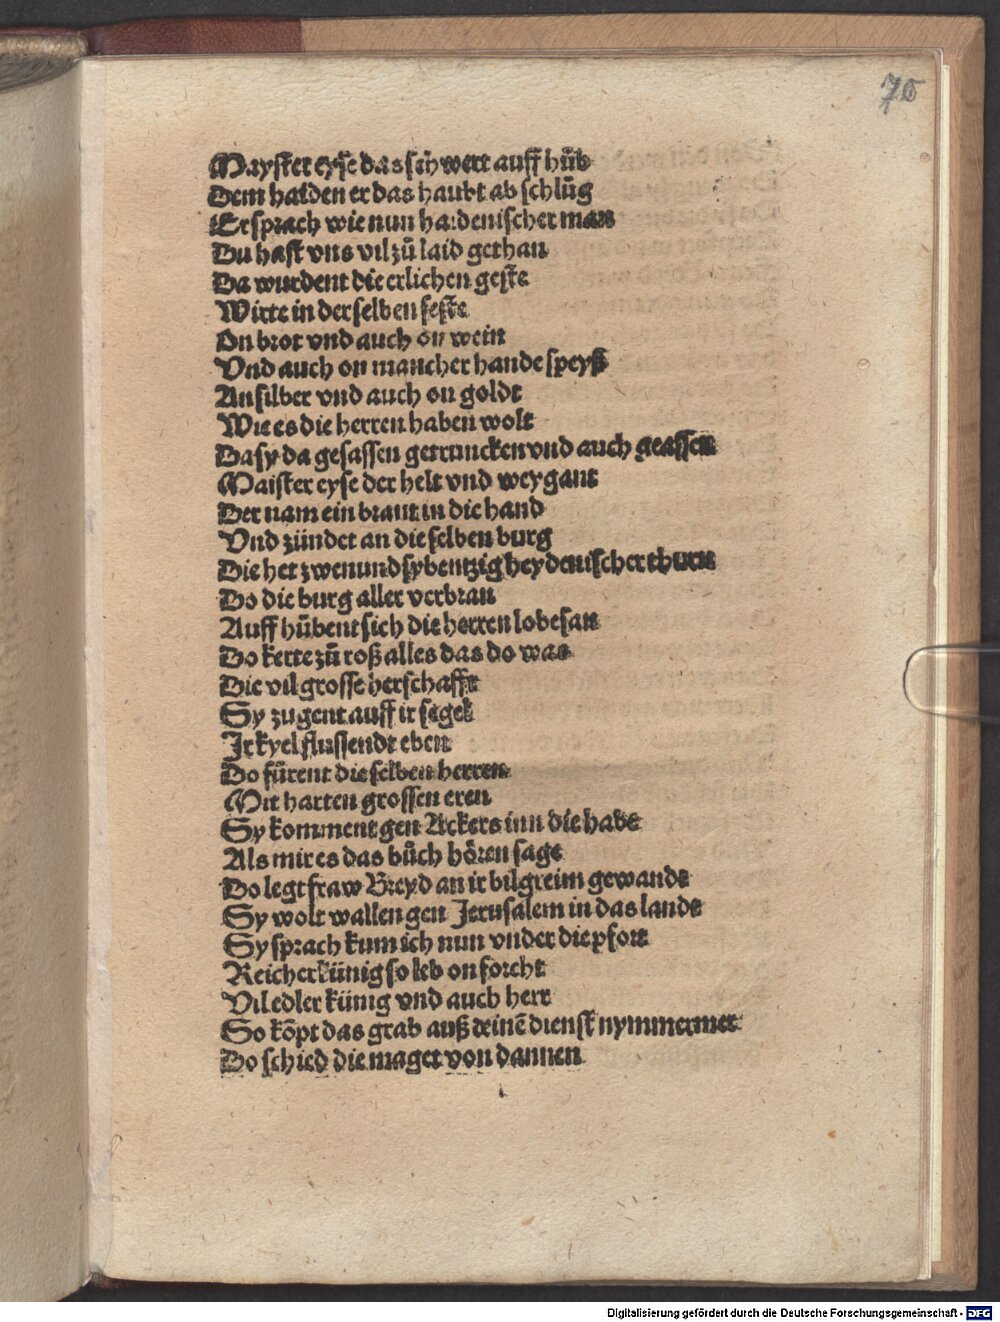 70
Mayster eyse das schwert auff hůb
Dem haiden er das haubt ab schlůg
Er sprach wie nun haidenischer man
Du hast vns vil zů laid gethan
Da wurdent die erlichen geste
Wirte in der selben feste
On brot vnd auch on wein
Vnd auch on mancher hande speyß
An silber vnd auch on goldt
Wie es die herren haben wolt
Da sy da gesassen getruncken vnd auch geassen
Maister eyse der helt vnd weygant
Der nam ein brant in die hand
Vnd zündet an die selben burg
Die het zwenundsybentzig heydenischer thurn
Do die burg aller verbran
Auff hůbent sich die herren lobesan
Do kerte zů roß alles das do was
Die vil grosse herschafft
Sy zugent auff ir segel
Ir kyel flussendt eben
Do fůrent die selben herren
Mit harten grossen eren
Sy komment gen Ackers inn die habe
Als mir es das bůch hören sage
Do legt fraw Breyd an ir bilgreim gewande
Sy wolt wallen gen Jerusalem in das lande
Sy sprach kum ich nun vnder die pfort
Reicher künig so leb on forcht
Vil edler künig vnd auch herr
So kōpt das grab auß deinē dienst nymmermer
Do schied die maget von dannen
Digitalisierung gefördert durch die Deutsche Forschungsgemeinschaft - DFG